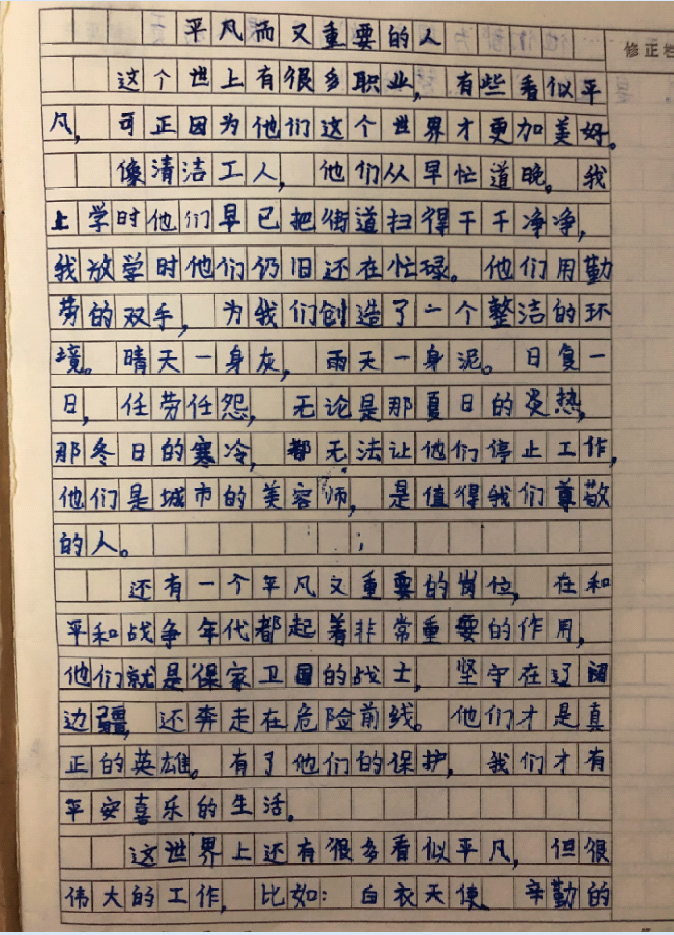 平凡而又重要的人
修正栏
这个世上有很多职业，有些看似平
凡，可正因为他们这个世界才更加美好。
像清洁工人，他们从早忙道晚。我
上学时他们早已把街道扫得干干净净，
我放学时他们仍旧还在忙碌。他们用勤
劳的双手，为我们创造了一个整洁的环
境。晴天一身灰，雨天一身泥。日复一
日，任劳任怨，无论是那夏日的炎热，
那冬日的寒冷，都无法让他们停止工作，
他们是城市的美容师，是值得我们尊敬
的人。
还有一个平凡又重要的岗位，在和
平和战争年代都起着非常重要的作用，
他们就是保家卫国的战士，坚守在辽阔
边疆，还奔走在危险前线。他们才是真
正的英雄。有了他们的保护，我们才有
平安喜乐的生活。
这世界上还有很多看似平凡，但很
伟大的工作，比如：白衣天使 辛勤的